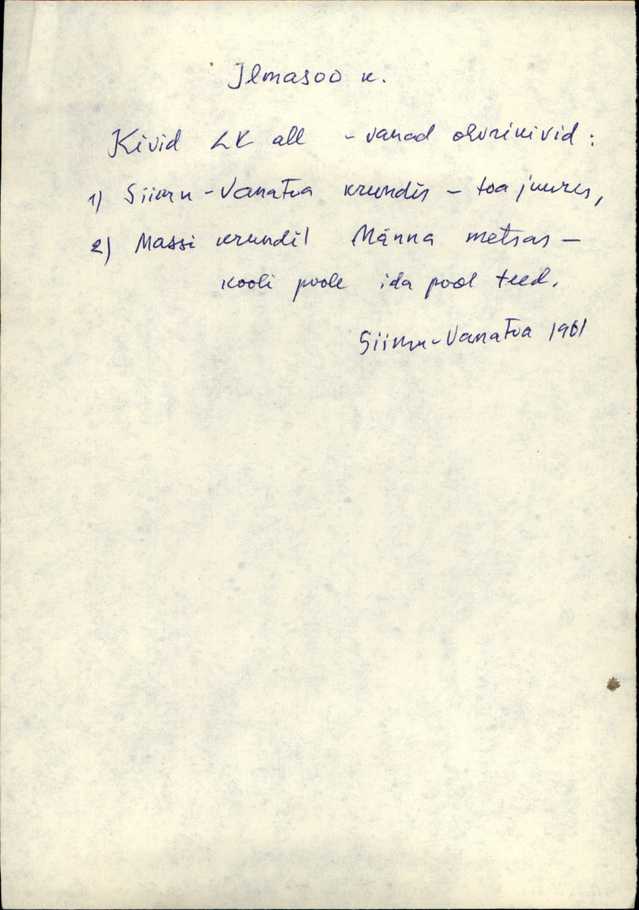 Ilmasoo k.
Kivid LK all - vanad ohvrikivid:
1) Siimu-Vanatoa krundis - toa juures,
2) Massi krundil Männa metsas -
kooli poole ida pool teed.
Siimu-Vanatoa 1961